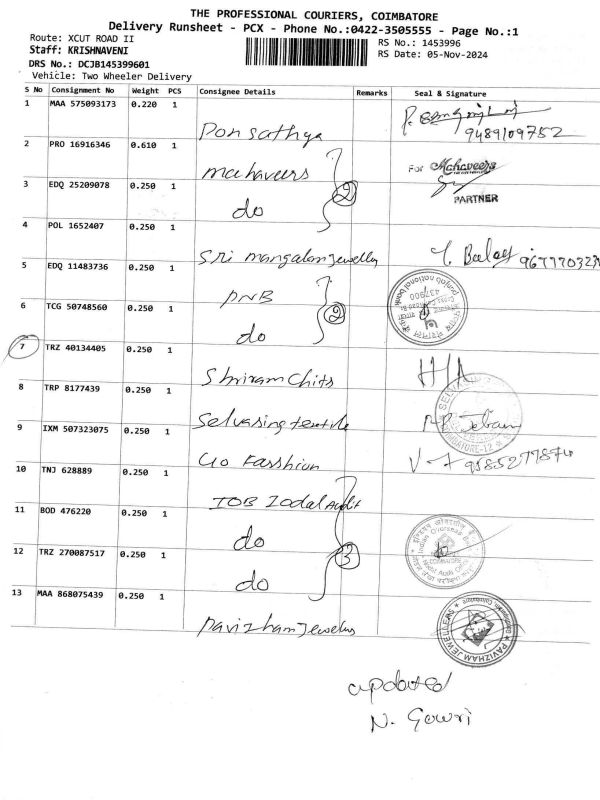 THE PROFESSIONAL COURIERS, COIMBATORE
Delivery Runsheet - PCX - Phone No.:0422-3505555 - Page No.:1
Route: XCUT ROAD II RS No.: 1453996
Staff: KRISHNAVENI RS Date: 05-Nov-2024
DRS No.: DCJB145399601
Vehicle: Two Wheeler Delivery
S No Consignment No Weight PCS Consignee Details Remarks Seal & Signature
1 MAA 575093173 0.220 1 Pon sathya 9489109752
2 PRO 16916346 0.610 1 mahaveers For Mahaveers
PARTNER
3 EDQ 25209078 0.250 1 do 2
4 POL 1652407 0.250 1 Sri mangalam Jewellry
5 EDQ 11483736 0.250 1 PNB punjab national bank
6 TCG 50748560 0.250 1 do 2
7 TRZ 40134405 0.250 1 Shriram Chits
8 TRP 8177439 0.250 1 Selvasing textile
9 IXM 507323075 0.250 1 Go Fasshion
10 TNJ 628889 0.250 1 IOB Zodal Audit
11 BOD 476220 0.250 1 do Indian Overseas Bank
12 TRZ 270087517 0.250 1 do 3
13 MAA 868075439 0.250 1 Pavizham Jewelers PAVIZHAM JEWELLERS
updated
N. Gowri